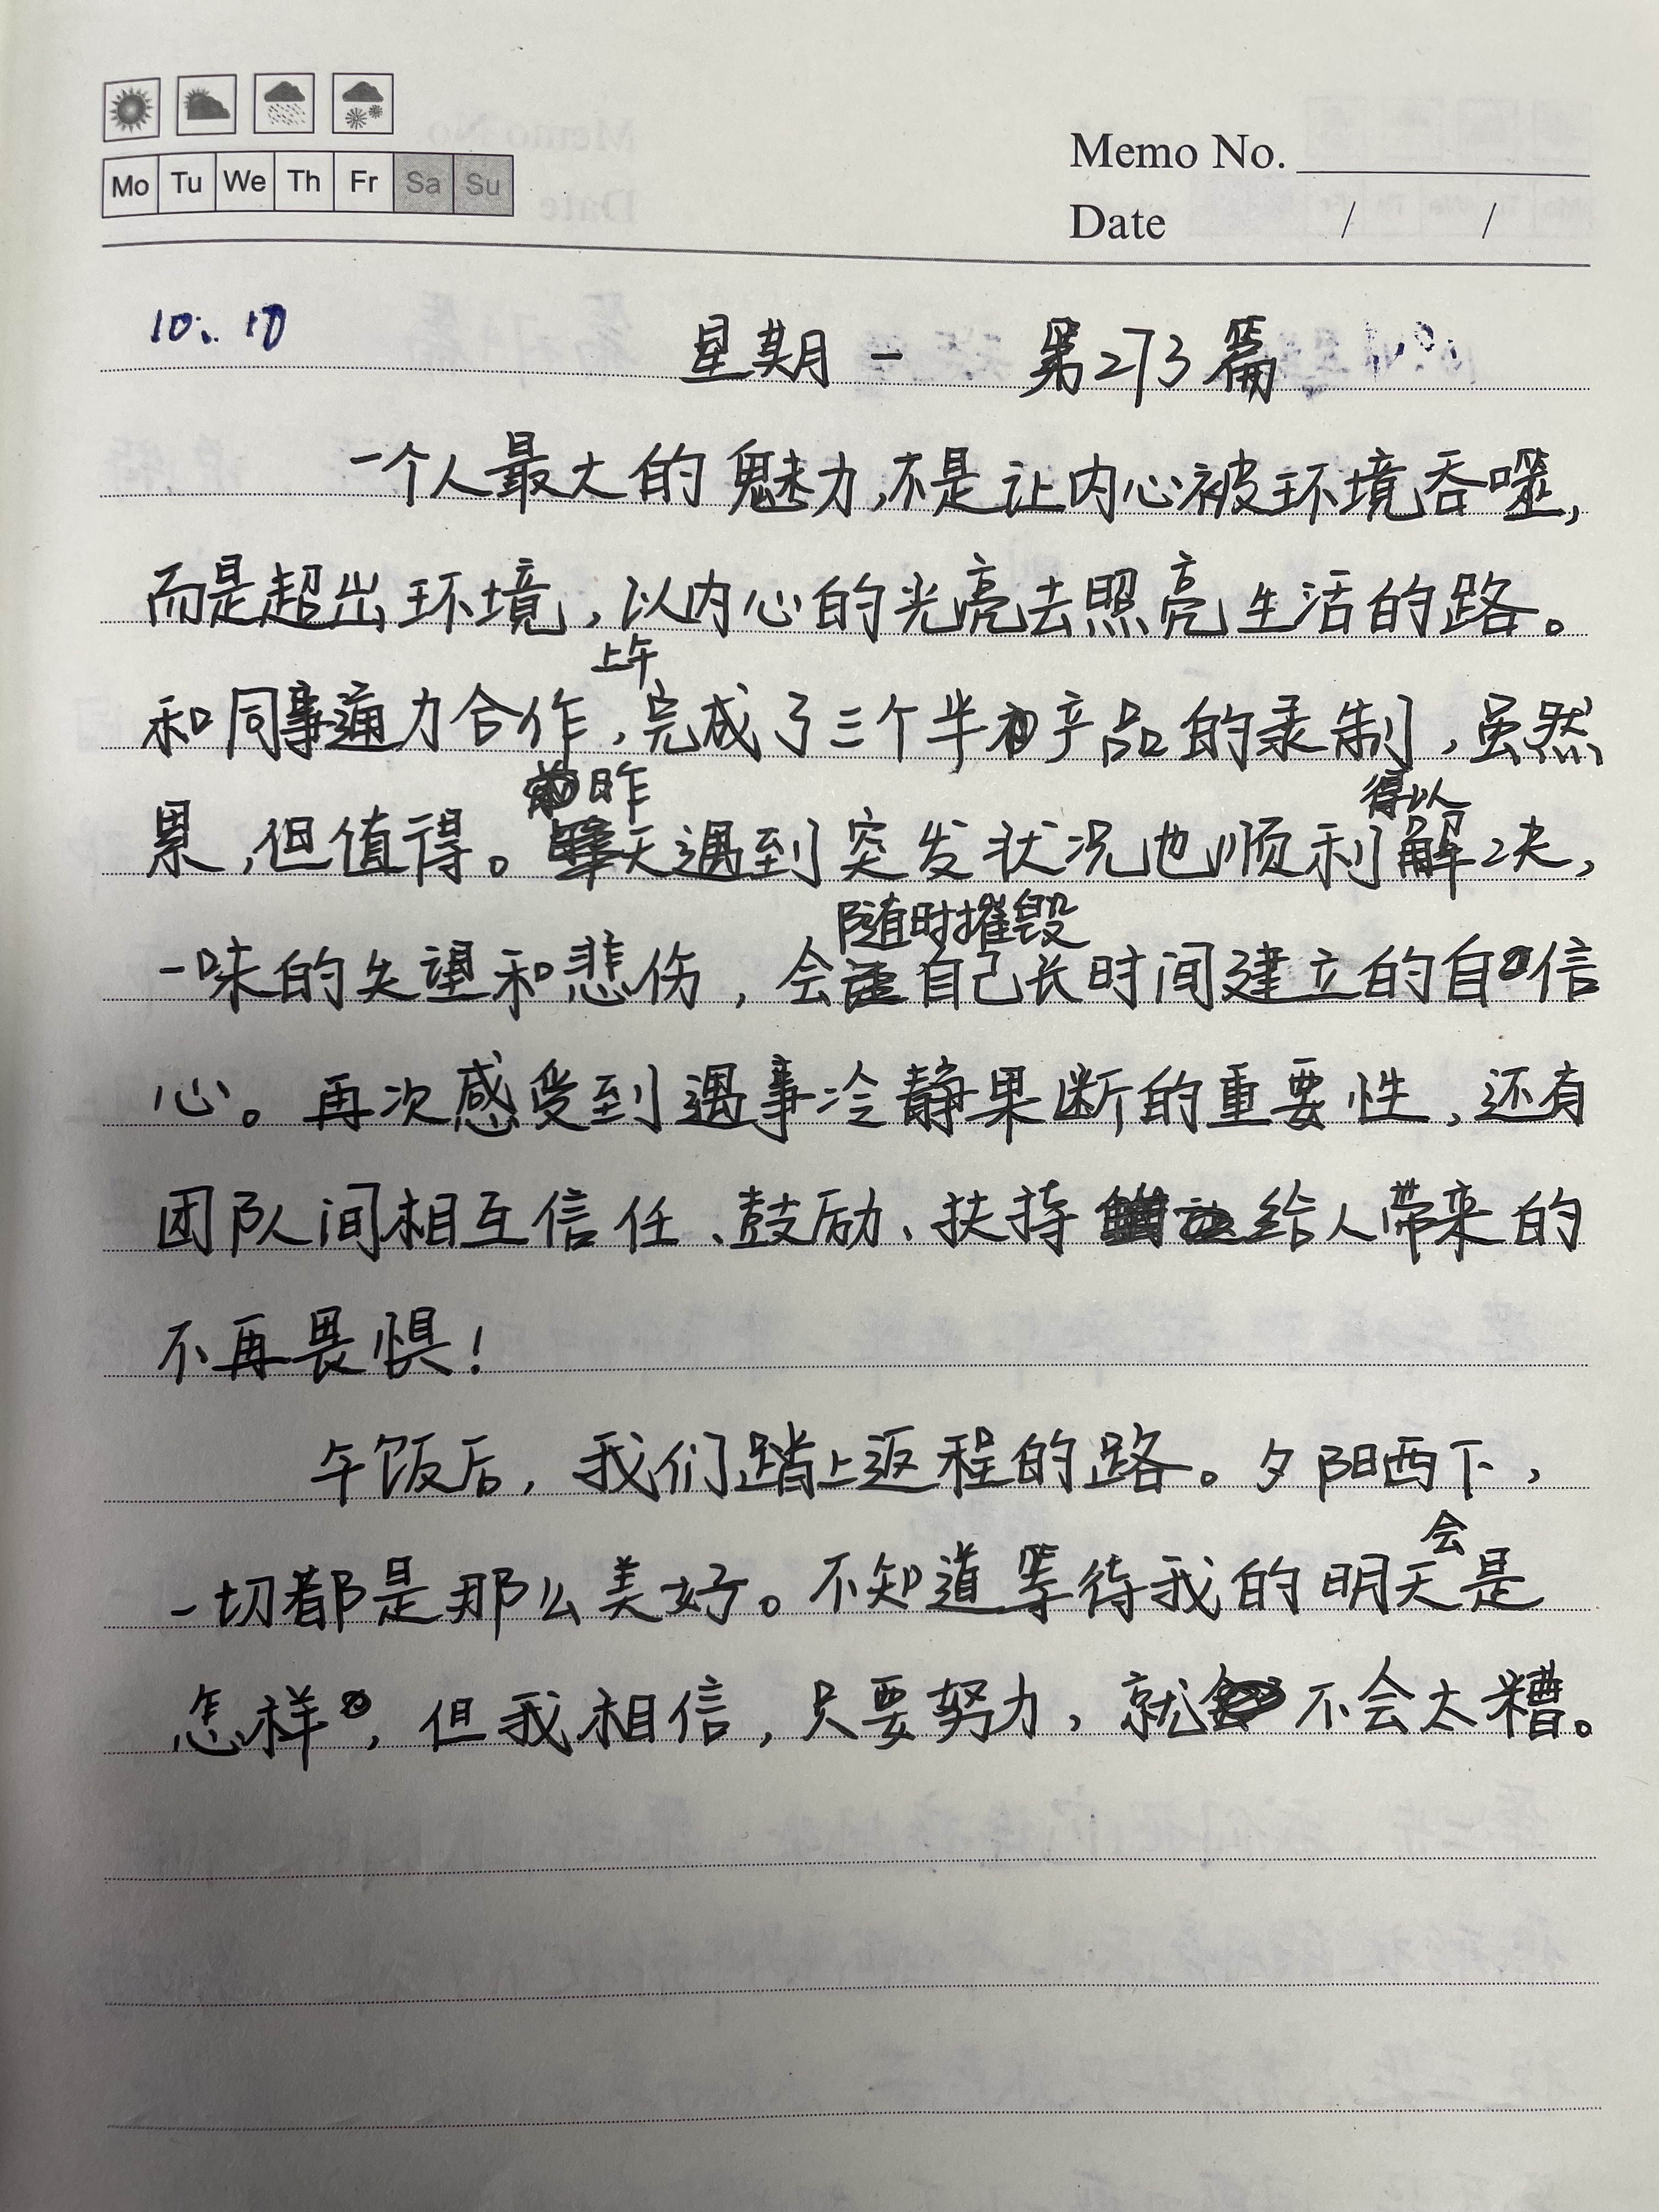 Mo Tu We Th Fr Sa Su
Memo No.
Date / /
10.10
星期一 第273篇
一个人最大的魅力,不是让内心被环境吞噬,
而是超出环境,以内心的光亮去照亮生活的路。
上午
和同事通力合作,完成了三个半产品的录制,虽然
昨 得以
累,但值得。天遇到突发状况也顺利解决,
随时摧毁
一味的失望和悲伤,会自己长时间建立的自信
心。再次感受到遇事冷静果断的重要性,还有
团队间相互信任、鼓励、扶持给人带来的
不再畏惧!
午饭后,我们踏上返程的路。夕阳西下,
会
一切都是那么美好。不知道等待我的明天是
怎样,但我相信,只要努力,就不会太糟。